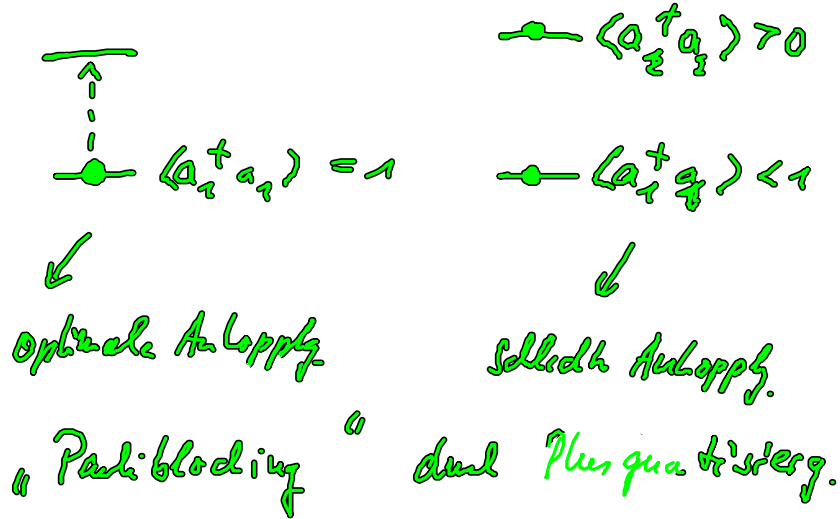 ⟨a₂⁺a₂⟩ > 0
⟨a₁⁺a₁⟩ = 1 ⟨a₁⁺a₁⟩ < 1
optimale Ankopplg.
schlecht Ankopplg.
„Pauliblocking“ durch